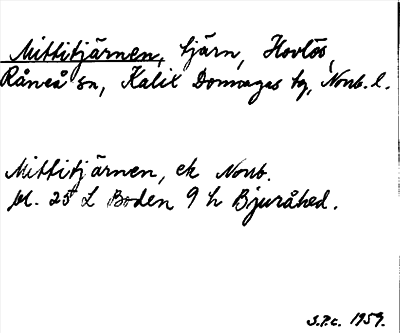 Mittitjärnen, tjärn, Hovlös,
Råneå sn, Kalix Domsagas tg, Norrb. l.
Mittitjärnen, ek Norrb.
bl. 25 L Boden 9 h Bjuråhed.
S.P.c. 1959.